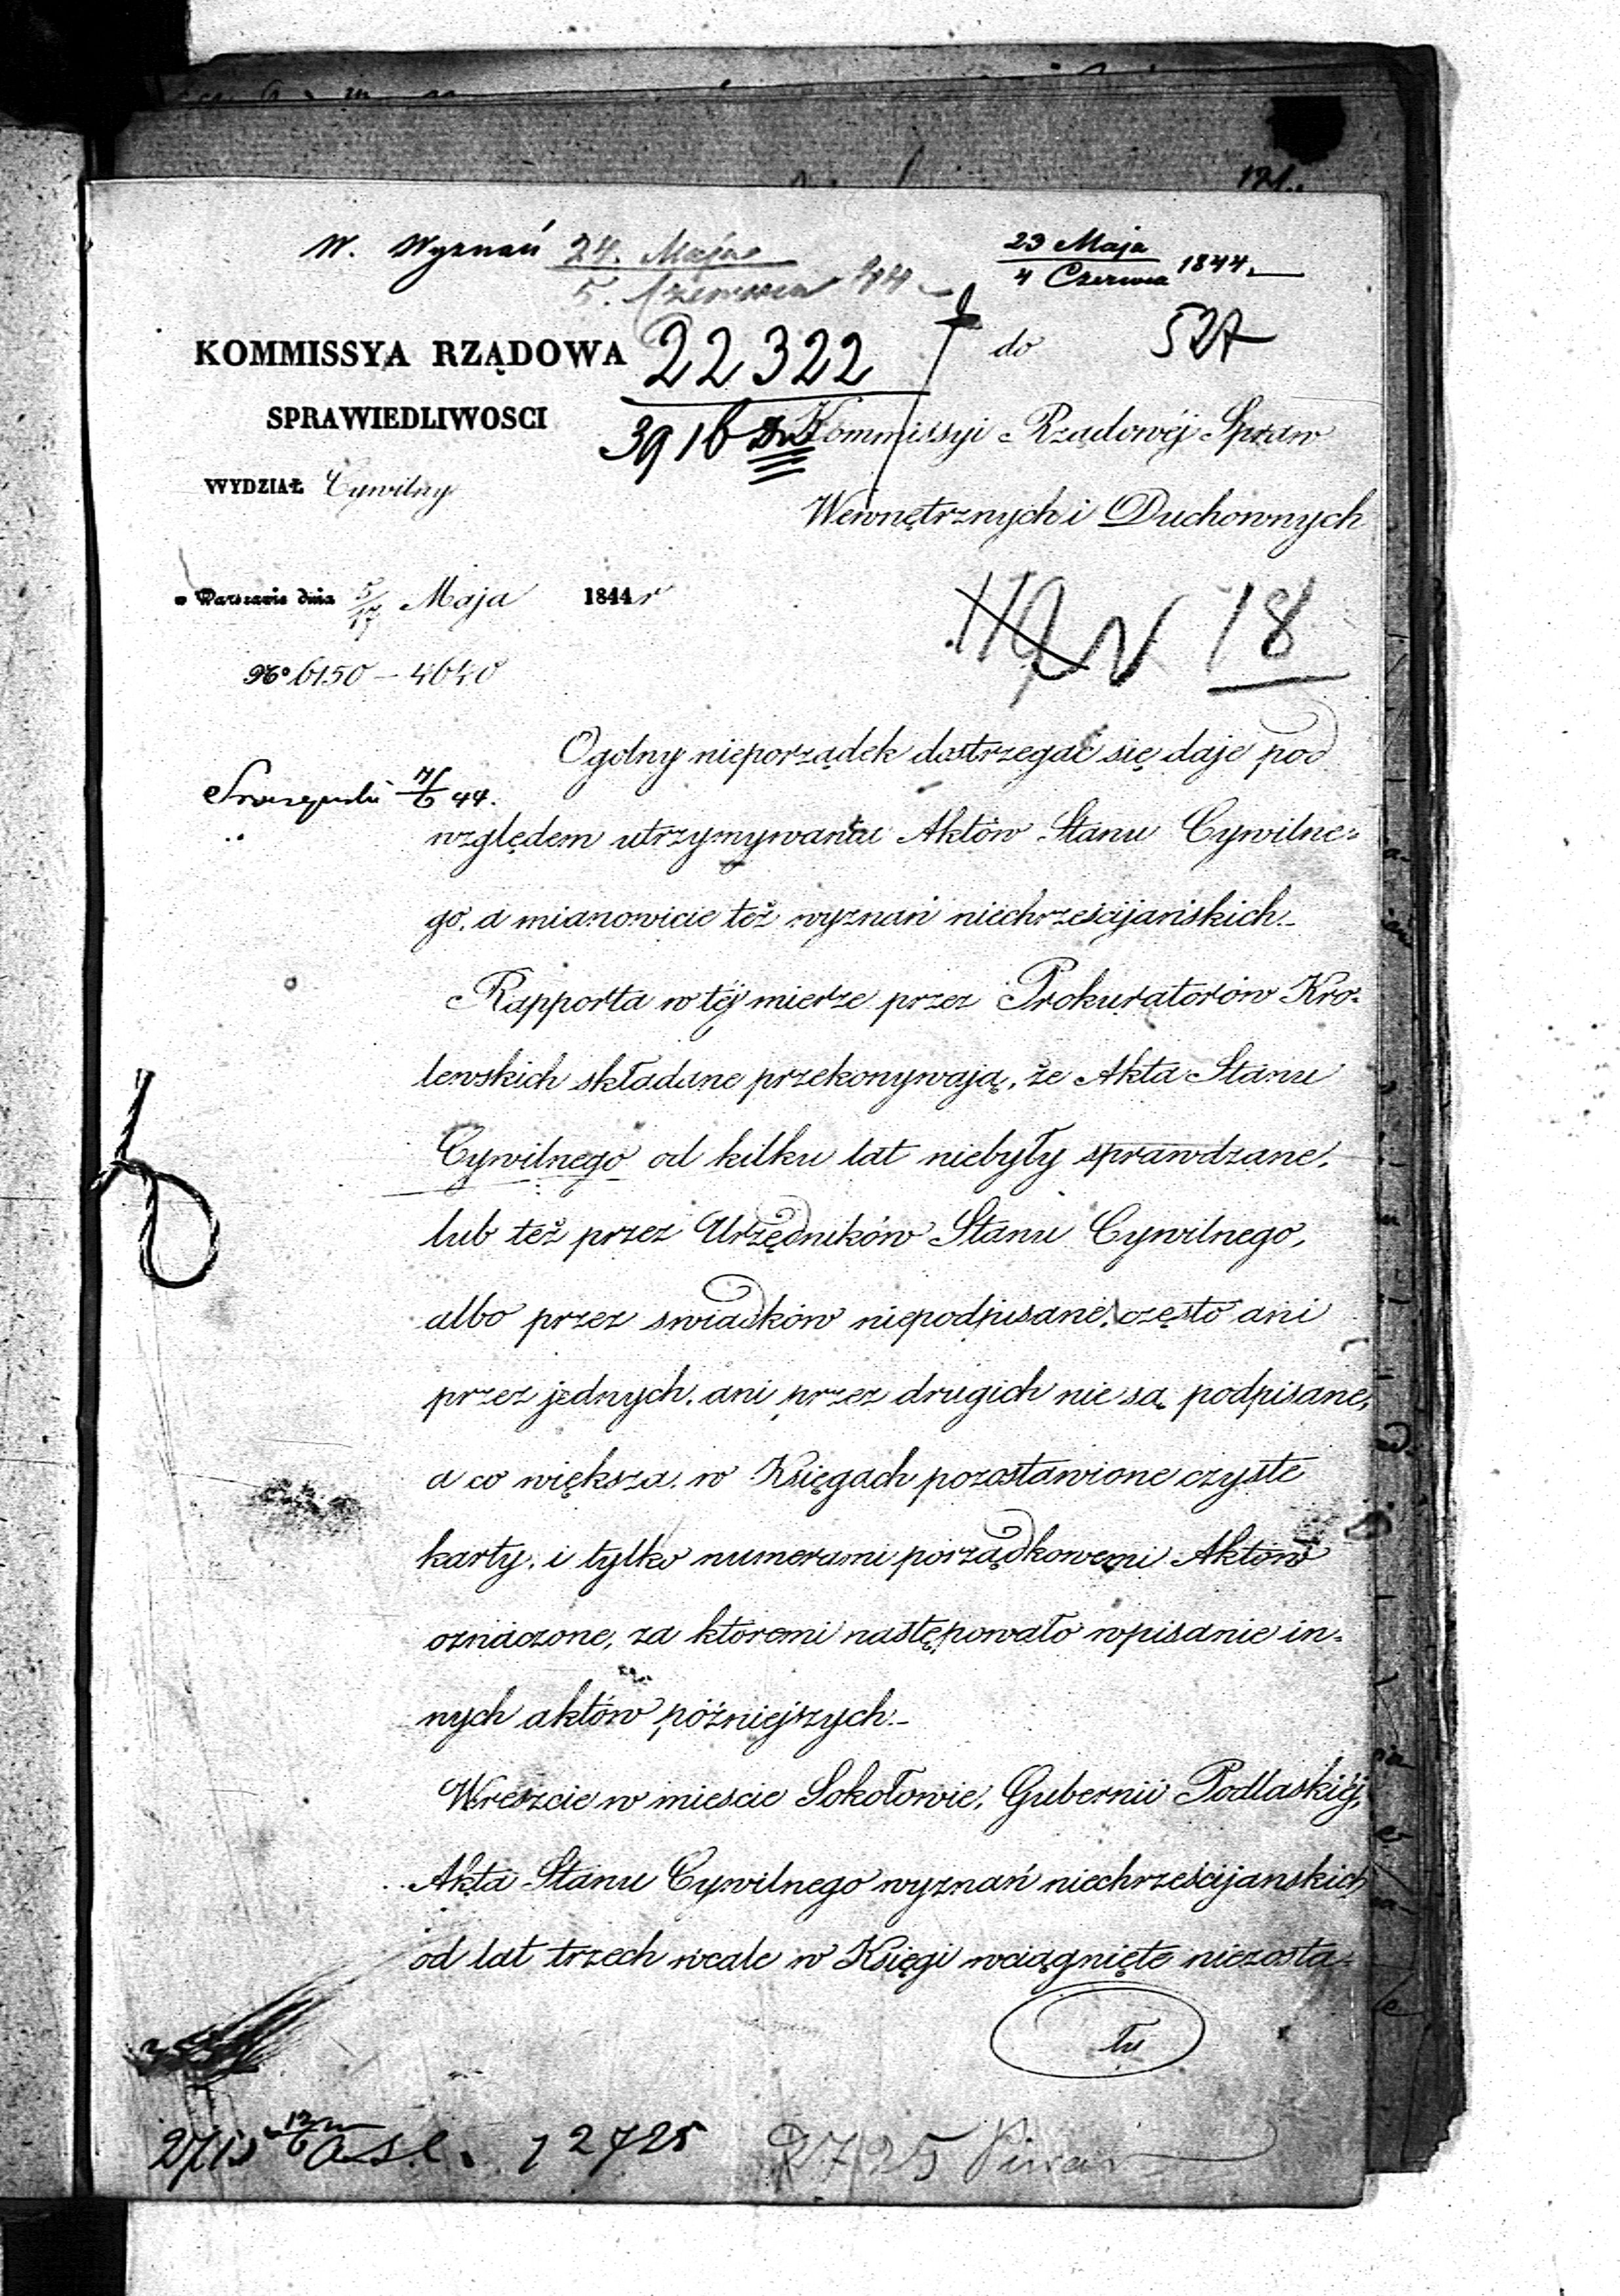 121.
W. Wyznań 24. Maja
5. Czerwca 44
23 Maja
4 Czerwca 1844.
KOMMISSYA RZĄDOWA
22322
do
527
SPRAWIEDLIWOSCI
3916
Kommissyi Rządowéj Spraw
WYDZIAŁ Cywilny
Wewnętrznych i Duchownych
w Warszawie dnia 5/17 Maja 1844 r
No 6150 – 4640
18
Ogolny nieporządek dostrzegać się daje pod
7/6 44.
względem utrzymywania Aktów Stanu Cywilne=
go, a mianowicie też wyznań niechrześcijańskich.–
Rapporta w téj mierze przez Prokuratorów Kró=
lewskich składane przekonywają, że Akta Stanu
Cywilnego od kilku lat niebyły sprawdzane,
lub też przez Urzędników Stanu Cywilnego,
albo przez swiadków niepodpisane, często ani
przez jednych, ani przez drugich nie są podpisane,
a co większa, w Księgach pozostawione czyste
karty, i tylko numerami porządkowemi Aktów
oznaczone, za któremi następowało wpisanie in=
nych aktów późniejszych.–
Wreszcie w miescie Sokołowie, Gubernii Podlaskiéj,
Akta Stanu Cywilnego wyznań niechrześcijanskich
od lat trzech wcale w Księgi wciągnięte niezosta=
ły
12/6
12725
2725